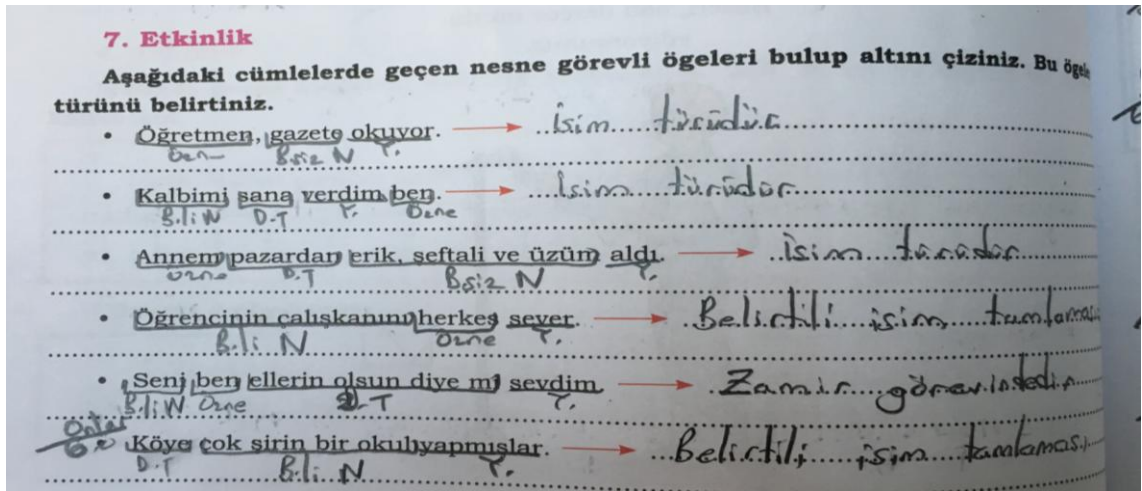 7. Etkinlik
Aşağıdaki cümlelerde geçen nesne görevli ögeleri bulup altını çiziniz. Bu ögele
türünü belirtiniz.
• Öğretmen, gazete okuyor. → İsim türüdür
B.siz N Y.
• Kalbimi sana verdim ben. → İsim türüdür
B.li N D.T Y. Özne
• Annem pazardan erik, şeftali ve üzüm aldı. → İsim türüdür
özne D.T B.siz N Y.
• Öğrencinin çalışkanını herkes sever. → Belirtili isim tamlaması
B.li N Özne Y.
• Seni ben ellerin olsun diye mi sevdim → Zamir görevindedir
B.li N Özne D.T Y.
Onlar
• Köye çok şirin bir okul yapmışlar. → Belirtili isim tamlaması
D.T B.li N Y.